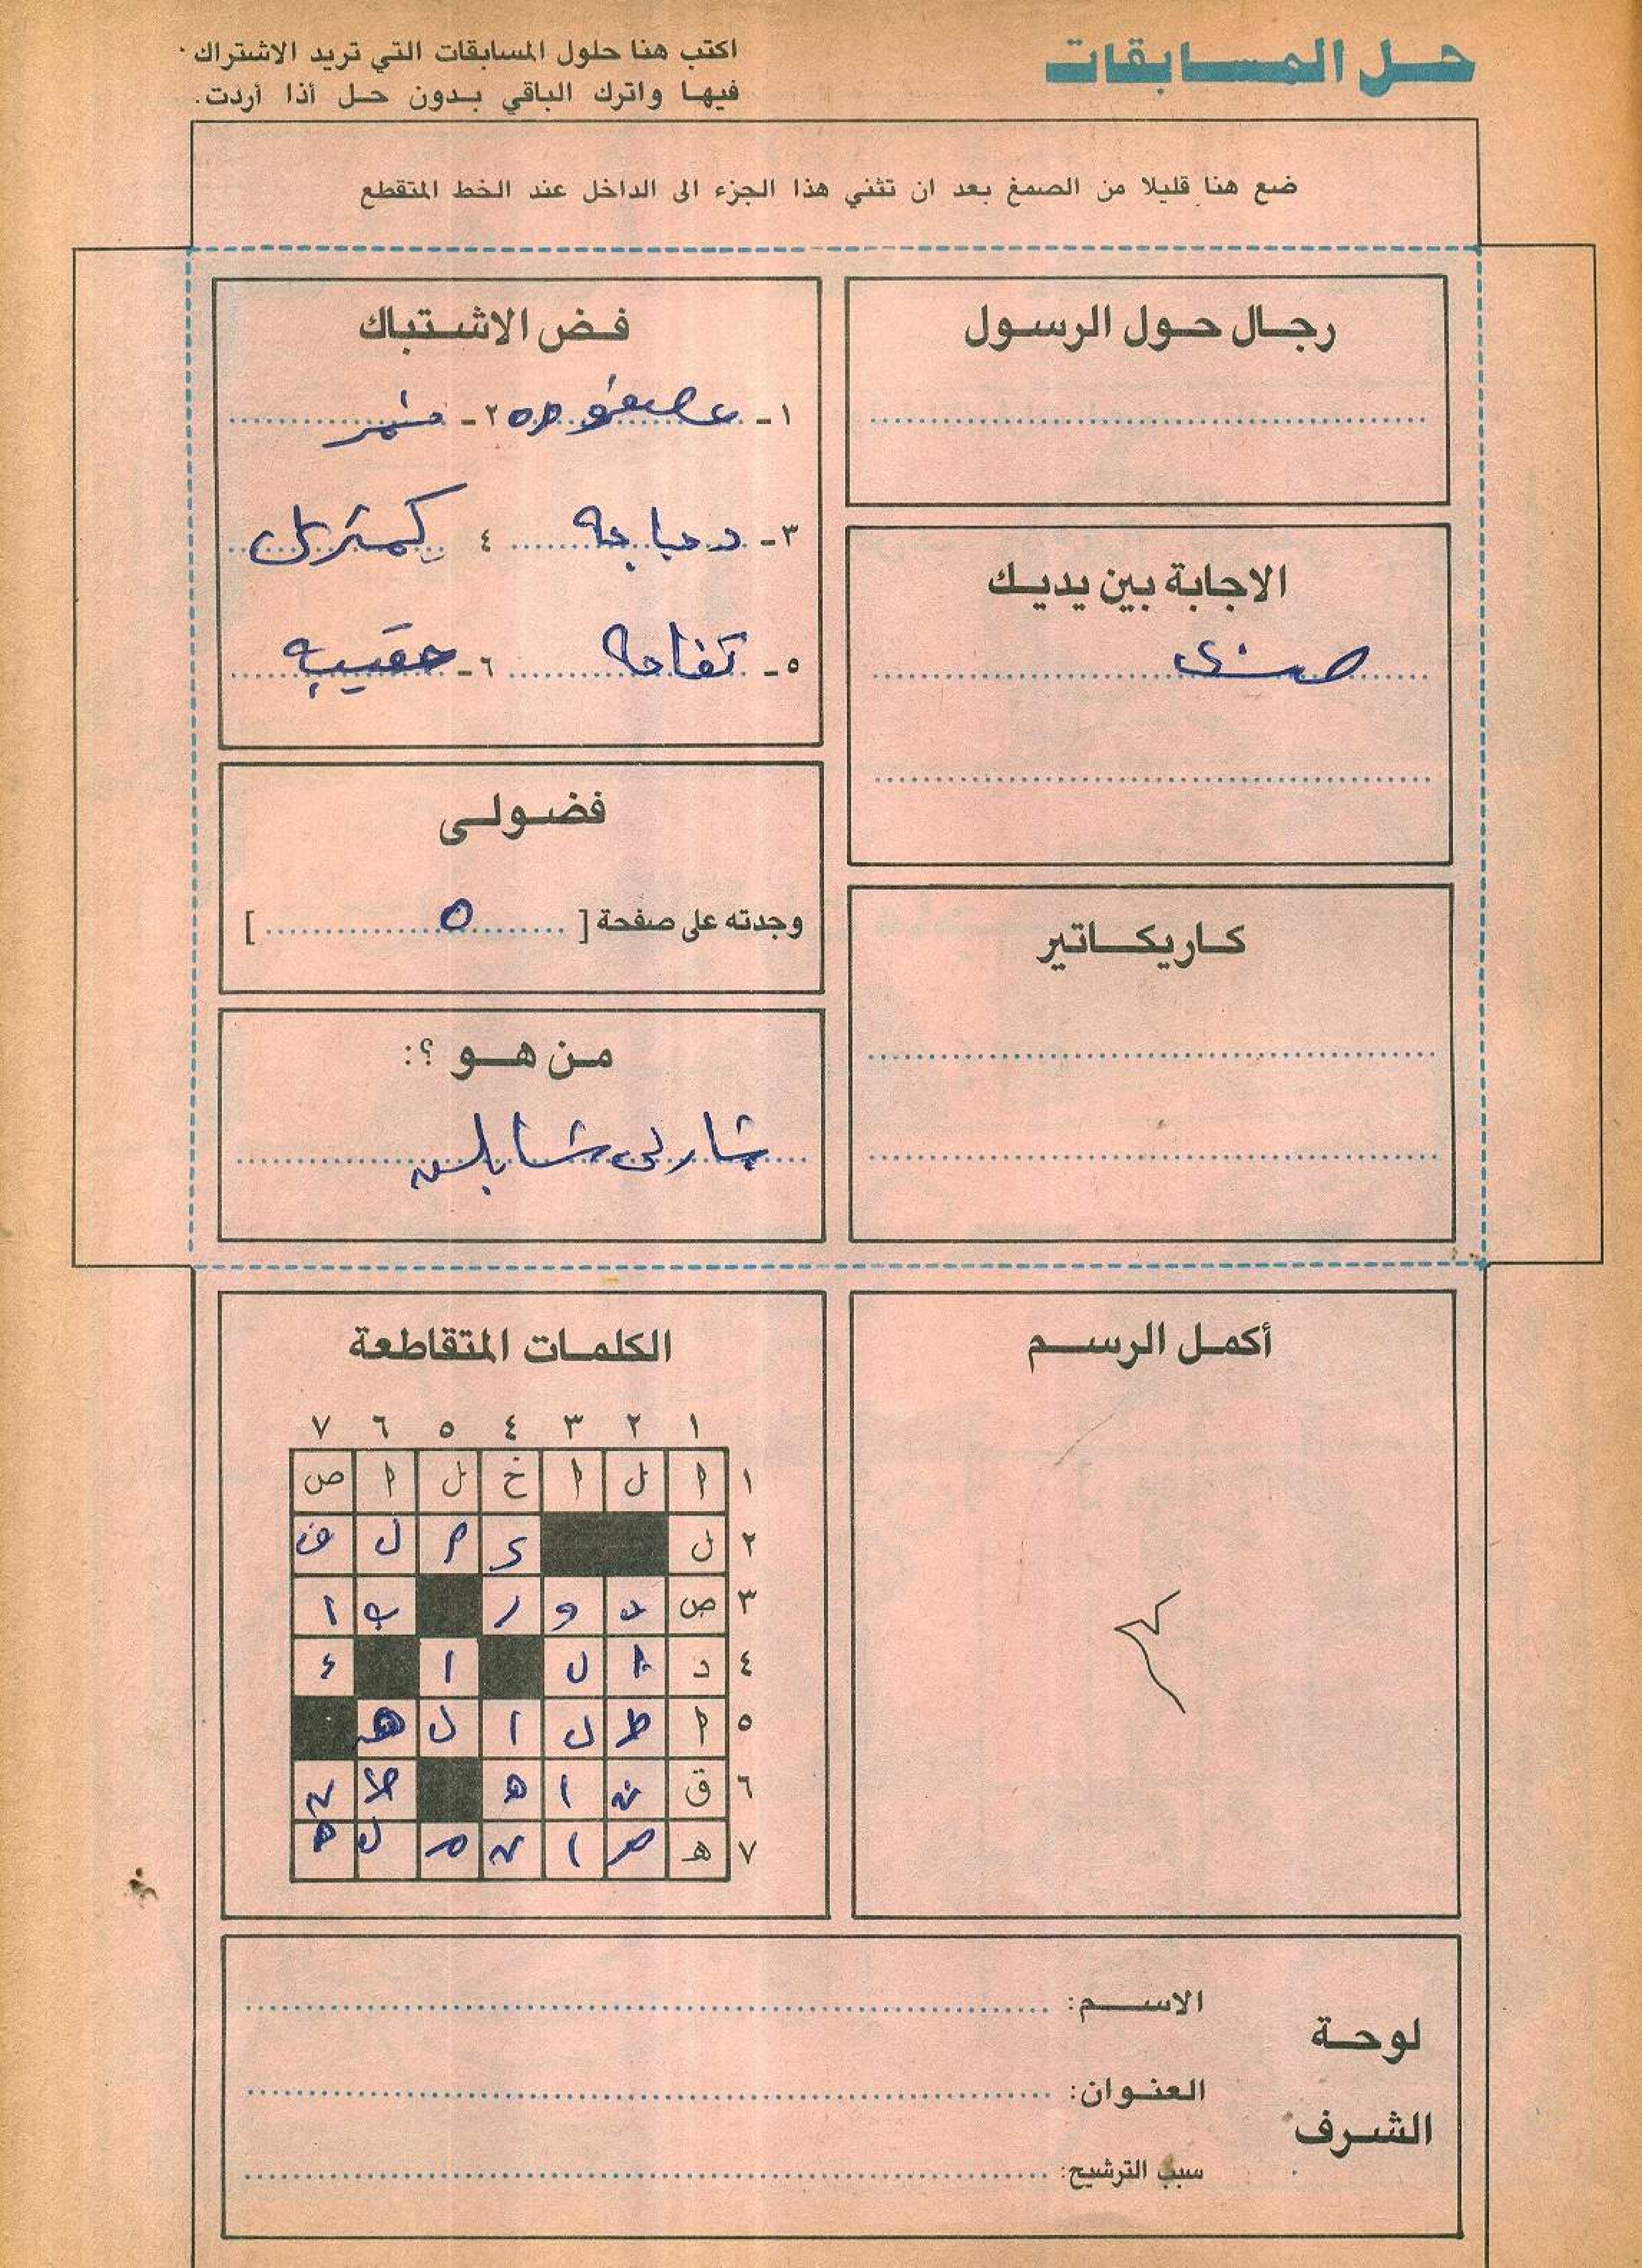 حل المسابقات
اكتب هنا حلول المسابقات التي تريد الاشتراك
فيها واترك الباقي بدون حل أذا أردت.
ضع هنا قليلا من الصمغ بعد ان تثني هذا الجزء الى الداخل عند الخط المتقطع
رجال حول الرسول
الاجابة بين يديك
كاريكاتير
فض الاشتباك
١- عصفوره ٢-
٣- دجاجه ٤ كمثرى
٥- تفاحه ٦- حقيبه
فضولى
وجدته على صفحة [ ٥ ]
من هو ؟:
شارلى شابلن
أكمل الرسم
الكلمات المتقاطعة
١ ٢ ٣ ٤ ٥ ٦ ٧
١ ا ل ا خ ل ا ص
٢ ل ى م ل ف
٣ ص د و ر ب ا
٤ د ا ل ا ء
٥ ا ط ل ا ل ه
٦ ق ن ا ه ن
٧ ه م ا ن م ل ه
لوحة الشرف
الاسم:
العنوان:
سبب الترشيح: